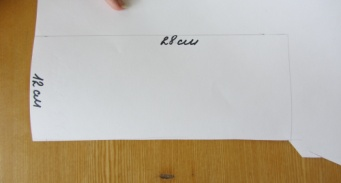 28 см
12 см